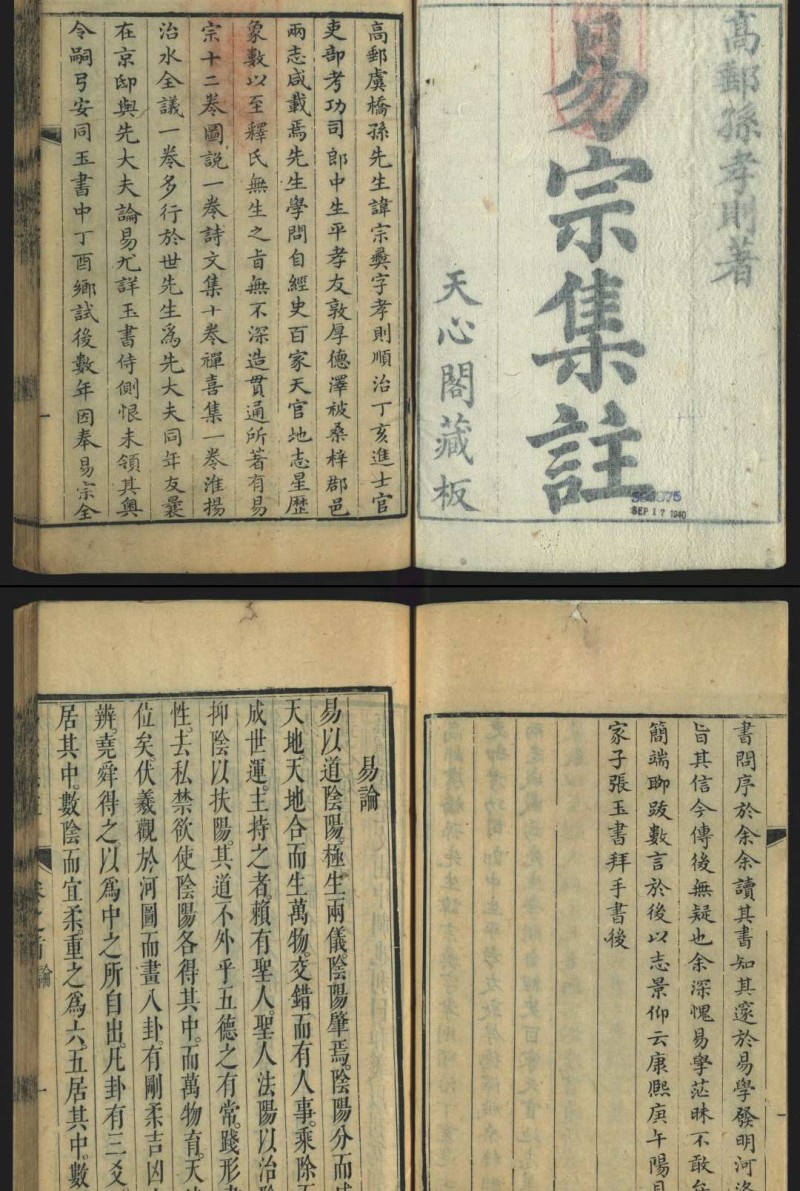 高郵孫孝則著
易宗集註
天心閣藏板
SEP 17 1940
高郵虞橋孫先生諱宗彝字孝則順治丁亥進士官
吏部考功司郎中生平孝友敦厚德澤被桑梓郡邑
兩志咸載焉先生學問自經史百家天官地志星歷
象數以至釋氏無生之旨無不深造貫通所著有易
宗十二卷圖說一卷詩文集十卷禪喜集一卷淮揚
治水全議一卷多行於世先生為先大夫同年友曩
在京邸與先大夫論易尤詳玉書侍側恨未領其奧
令嗣弓安同玉書中丁酉鄉試後數年因奉易宗全
書問序於余余讀其書知其邃於易學發明河洛
旨其信今傳後無疑也余深愧易學茫昧不敢
簡端聊跋數言於後以志景仰云康熙庚午陽月
家子張玉書拜手書後
易論
易以道陰陽極生兩儀陰陽肇焉陰陽分而
天地天地合而生萬物交錯而有人事乘除
成世運主持之者賴有聖人聖人法陽以治
抑陰以扶陽其道不外乎五德之有常踐形
性去私禁欲使陰陽各得其中而萬物育天
位矣伏羲觀於河圖而畫八卦有剛柔吉凶
辨堯舜得之以為中之所自出凡卦有三爻
居其中數陰而宜柔重之為六五居其中數